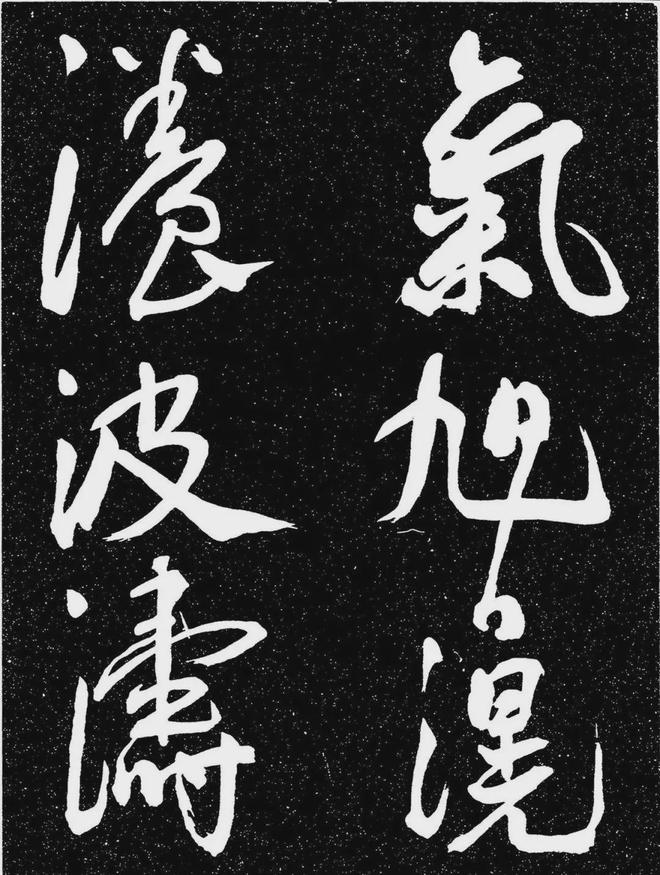 氣旭滉
瀁波濤